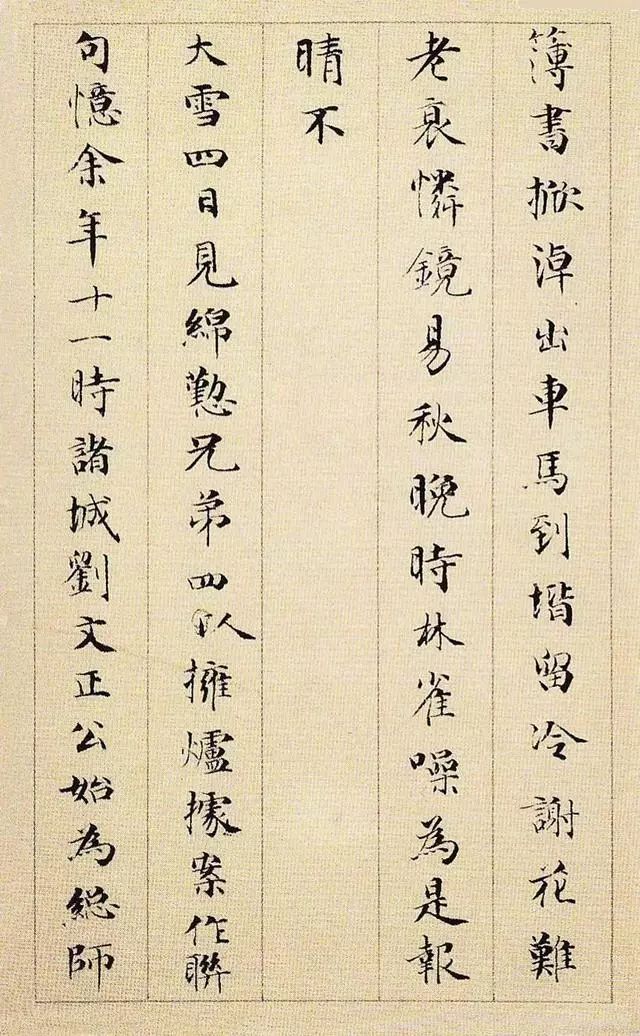 簿書掀淖出車馬到堦留冷謝花難
老哀憐鏡易秋晚時林雀噪為是報
晴不
大雪四日見綿懃兄弟四人擁爐據案作聯
句憶余年十一時諸城劉文正公始為總師